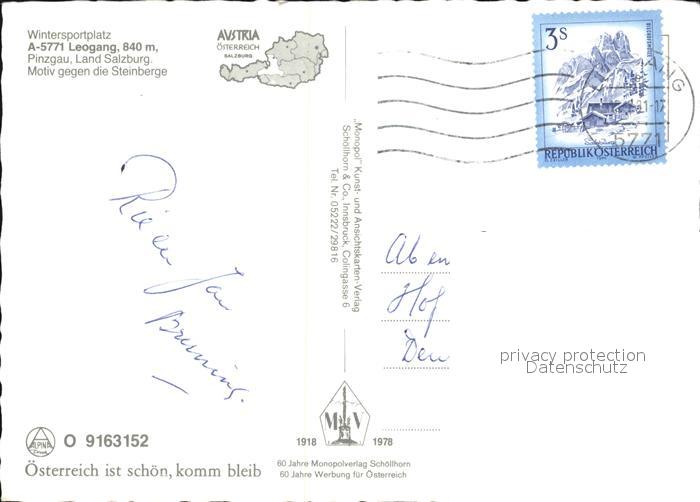 Wintersportplatz
A-5771 Leogang, 840 m,
Pinzgau, Land Salzburg.
Motiv gegen die Steinberge
AVSTRIA
ÖSTERREICH
SALZBURG
3S
REPUBLIK ÖSTERREICH
5771
„Monopol" Kunst- und Ansichtskarten-Verlag
Schöllhorn & Co., Innsbruck, Colingasse 6
Tel. Nr. 05222/29816
Jan
Bruning.
Hof
privacy protection
Datenschutz
ALPINA
O 9163152
Österreich ist schön, komm bleib
M V
1918 1978
60 Jahre Monopolverlag Schöllhorn
60 Jahre Werbung für Österreich